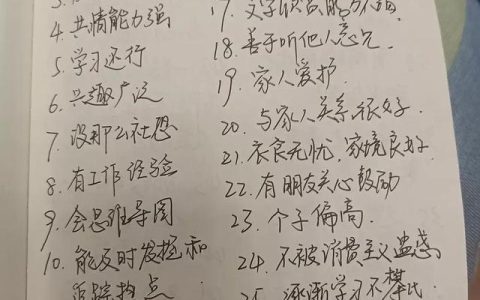 4. 共情能力强
5. 学习还行
6. 兴趣广泛
7. 没那么社恐
8. 有工作经验
9. 会思维导图
10. 能及时发掘和
追踪热点
17. 文字
18. 善于听他人意见.
19. 家人爱护.
20. 与家人关系很好.
21. 衣食无忧, 家境良好.
22. 有朋友关心鼓励
23. 个子偏高.
24. 不被消费主义蛊惑
25. 逐渐学习不攀比